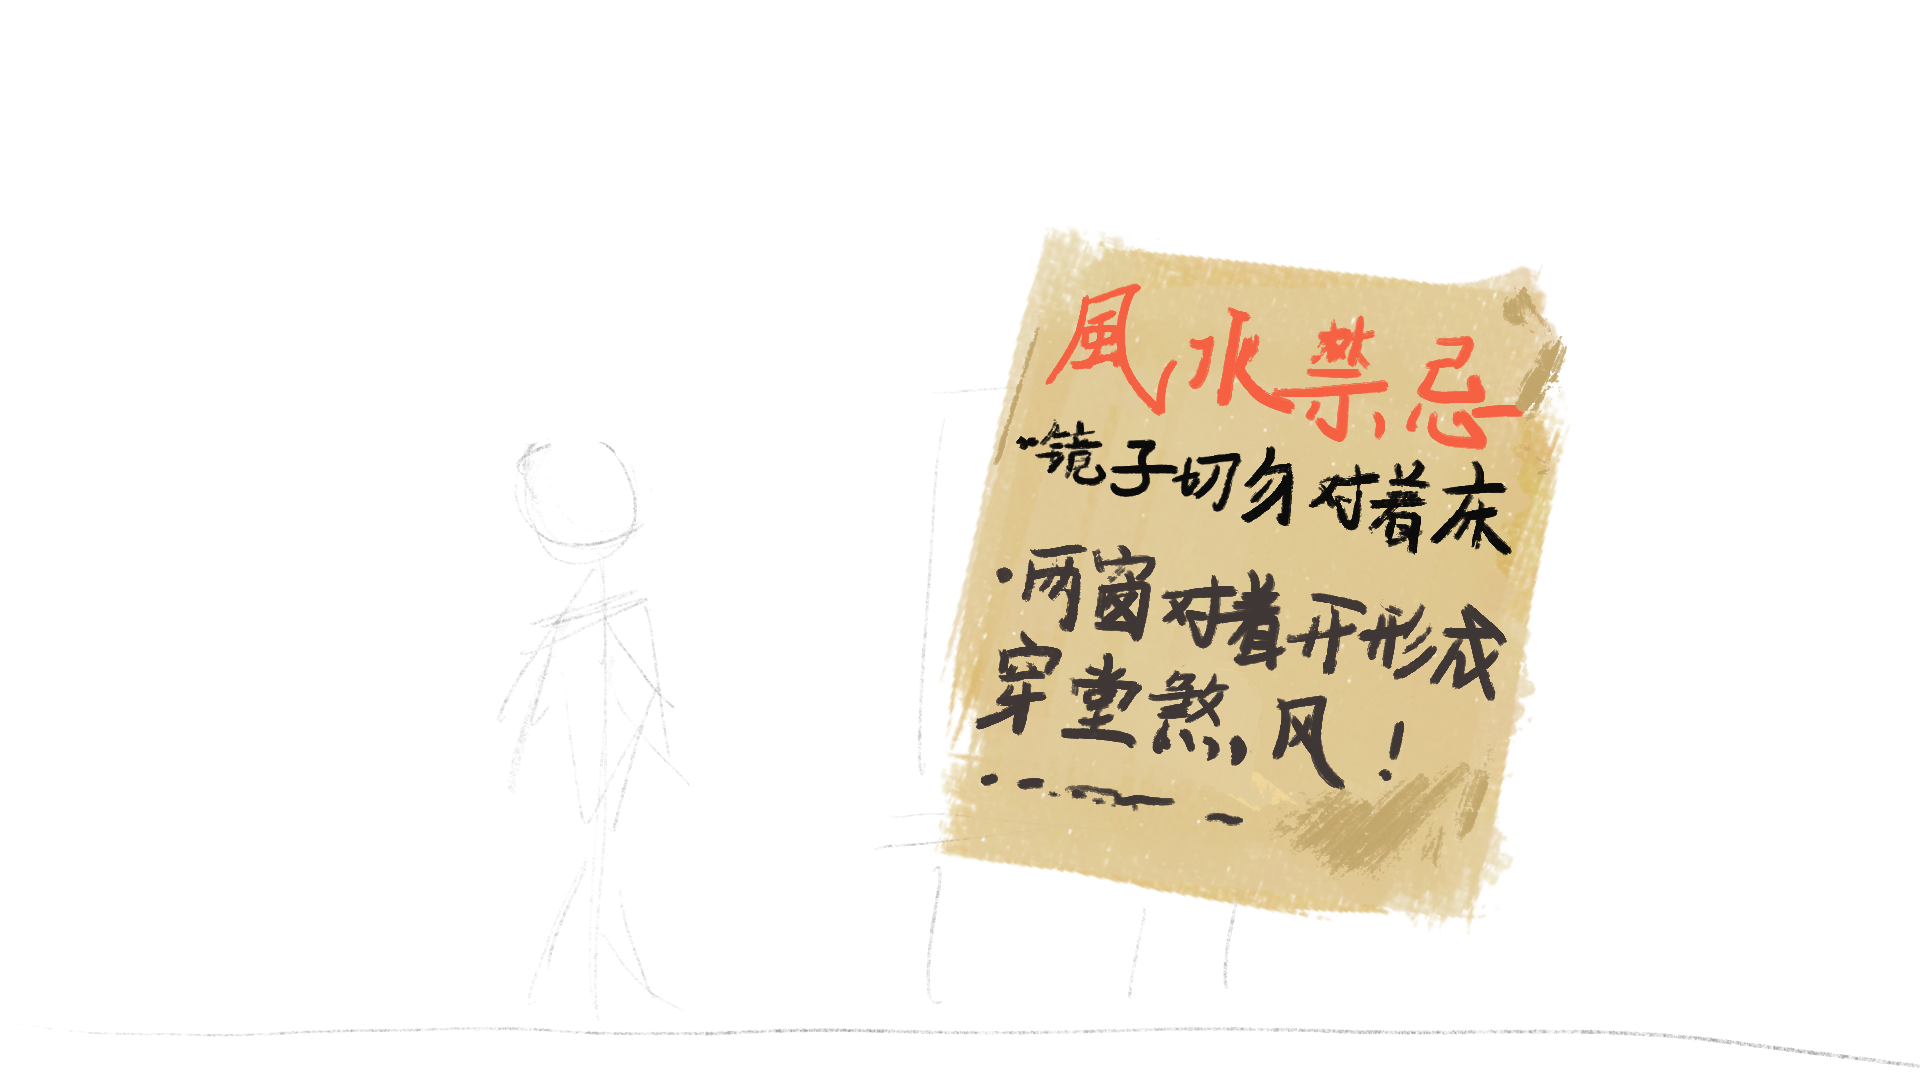 風水禁忌
·镜子切勿对着床
·两窗对着开形成
穿堂煞风!